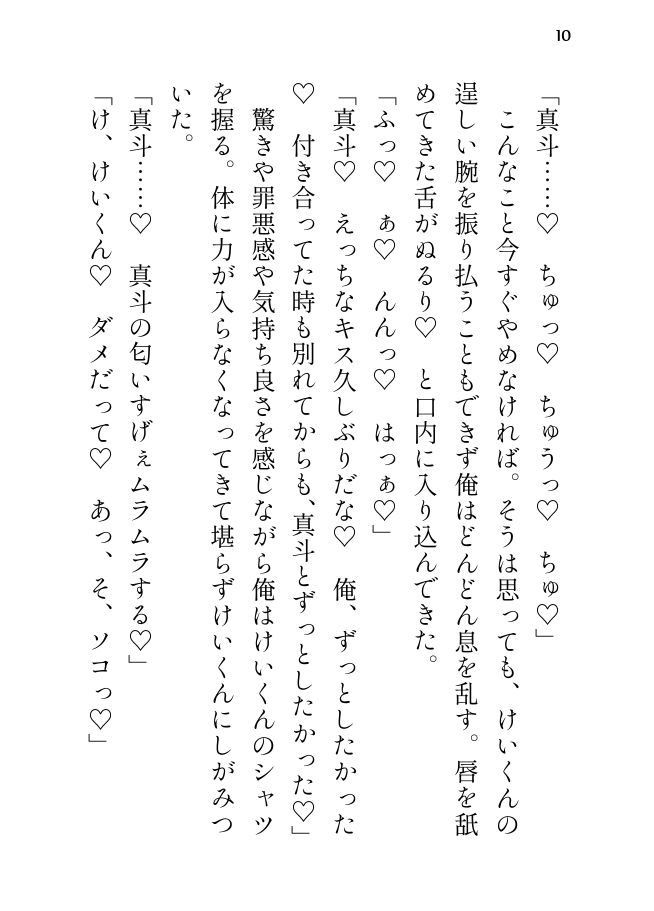 10
「真斗……♡　ちゅっ♡　ちゅうっ♡　ちゅ♡」
　こんなこと今すぐやめなければ。そうは思っても、けいくんの
逞しい腕を振り払うこともできず俺はどんどん息を乱す。唇を舐
めてきた舌がぬるり♡　と口内に入り込んできた。
「ふっ♡　ぁ♡　んんっ♡　はっぁ♡」
「真斗♡　えっちなキス久しぶりだな♡　俺、ずっとしたかった
♡　付き合ってた時も別れてからも、真斗とずっとしたかった♡」
　驚きや罪悪感や気持ち良さを感じながら俺はけいくんのシャツ
を握る。体に力が入らなくなってきて堪らずけいくんにしがみつ
いた。
「真斗……♡　真斗の匂いすげぇムラムラする♡」
「け、けいくん♡　ダメだって♡　あっ、そ、ソコっ♡」